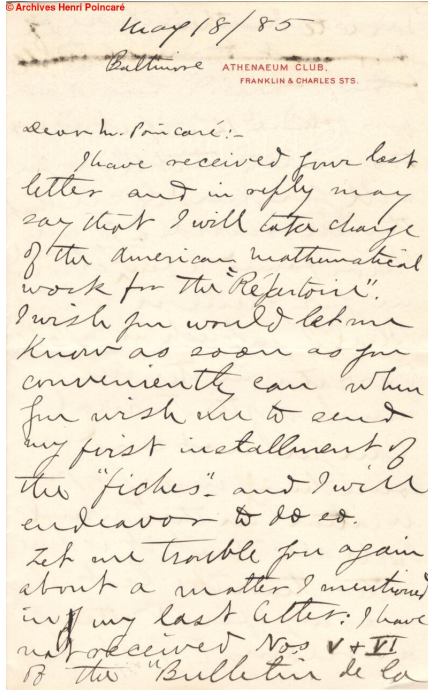 © Archives Henri Poincaré
May 18/85
Baltimore ATHENAEUM CLUB,
FRANKLIN & CHARLES STS.
Dear Mr. Poincaré:-
I have received your last
letter and in reply may
say that I will take charge
of the American mathematical
work for the "Répertoire".
I wish you would let me
know as soon as you
conveniently can when
you wish me to send
my first installment of
the "fiches" and I will
endeavor to do so.
Let me trouble you again
about a matter I mentioned
in my last letter: I have
not received Nos V + VI
of the "Bulletin de la